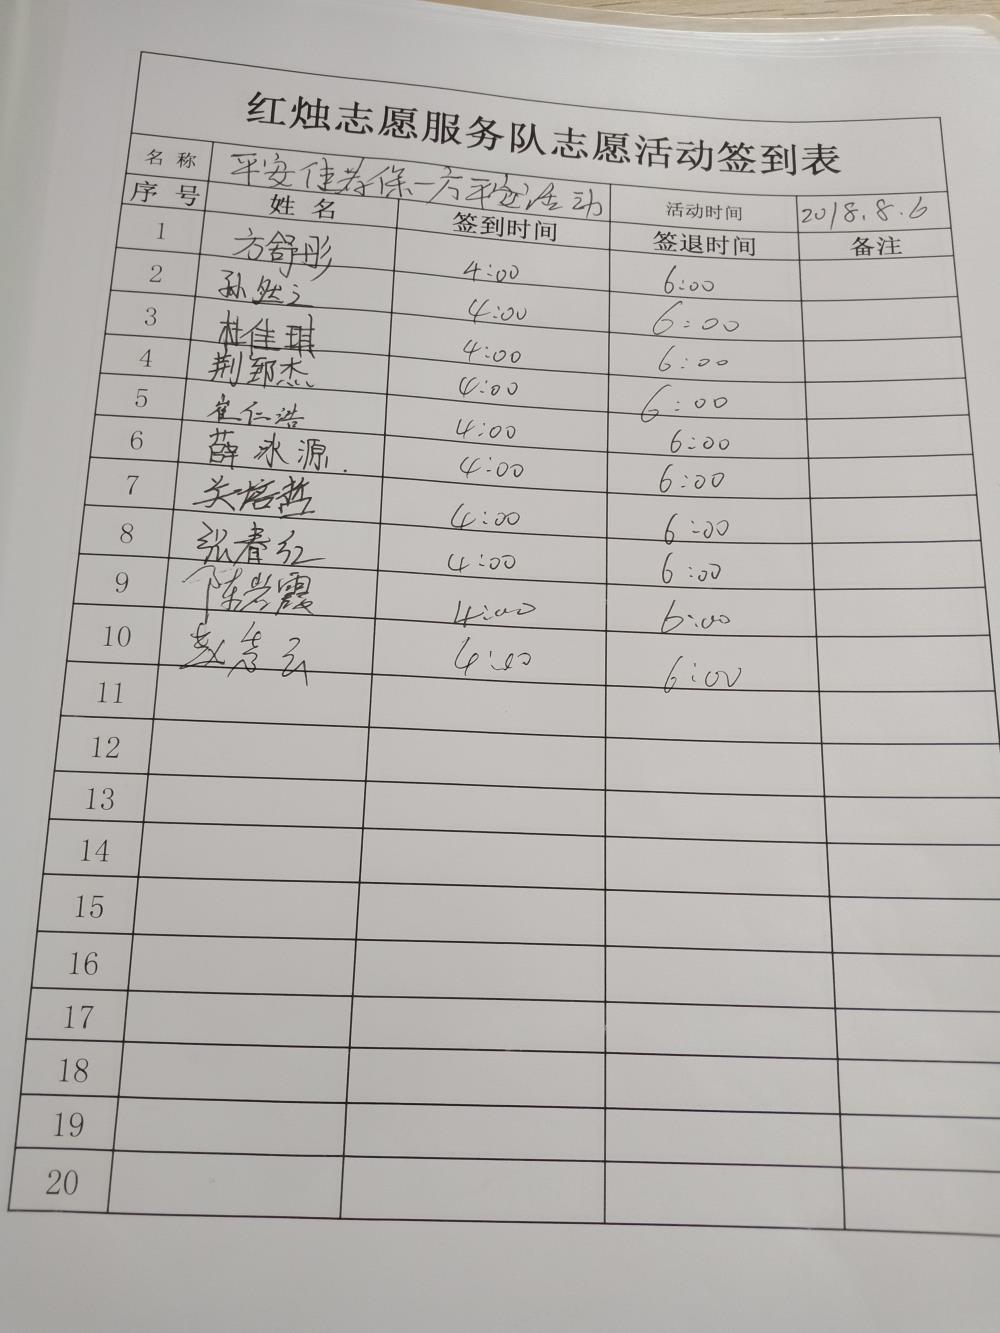 红烛志愿服务队志愿活动签到表
名称 平安佳 保一方平安活动 活动时间 2018.8.6
序号 姓名 签到时间 签退时间 备注
1 方舒彤 4:00 6:00
2 孙 4:00 6:00
3 杜佳琪 4:00 6:00
4 荆郅杰 4:00 6:00
5 崔仁浩 4:00 6:00
6 薛冰源. 4:00 6:00
7 关培哲 4:00 6:00
8 张春红 4:00 6:00
9 陈岩霞 4:00 6:00
10 4:00 6:00
11
12
13
14
15
16
17
18
19
20